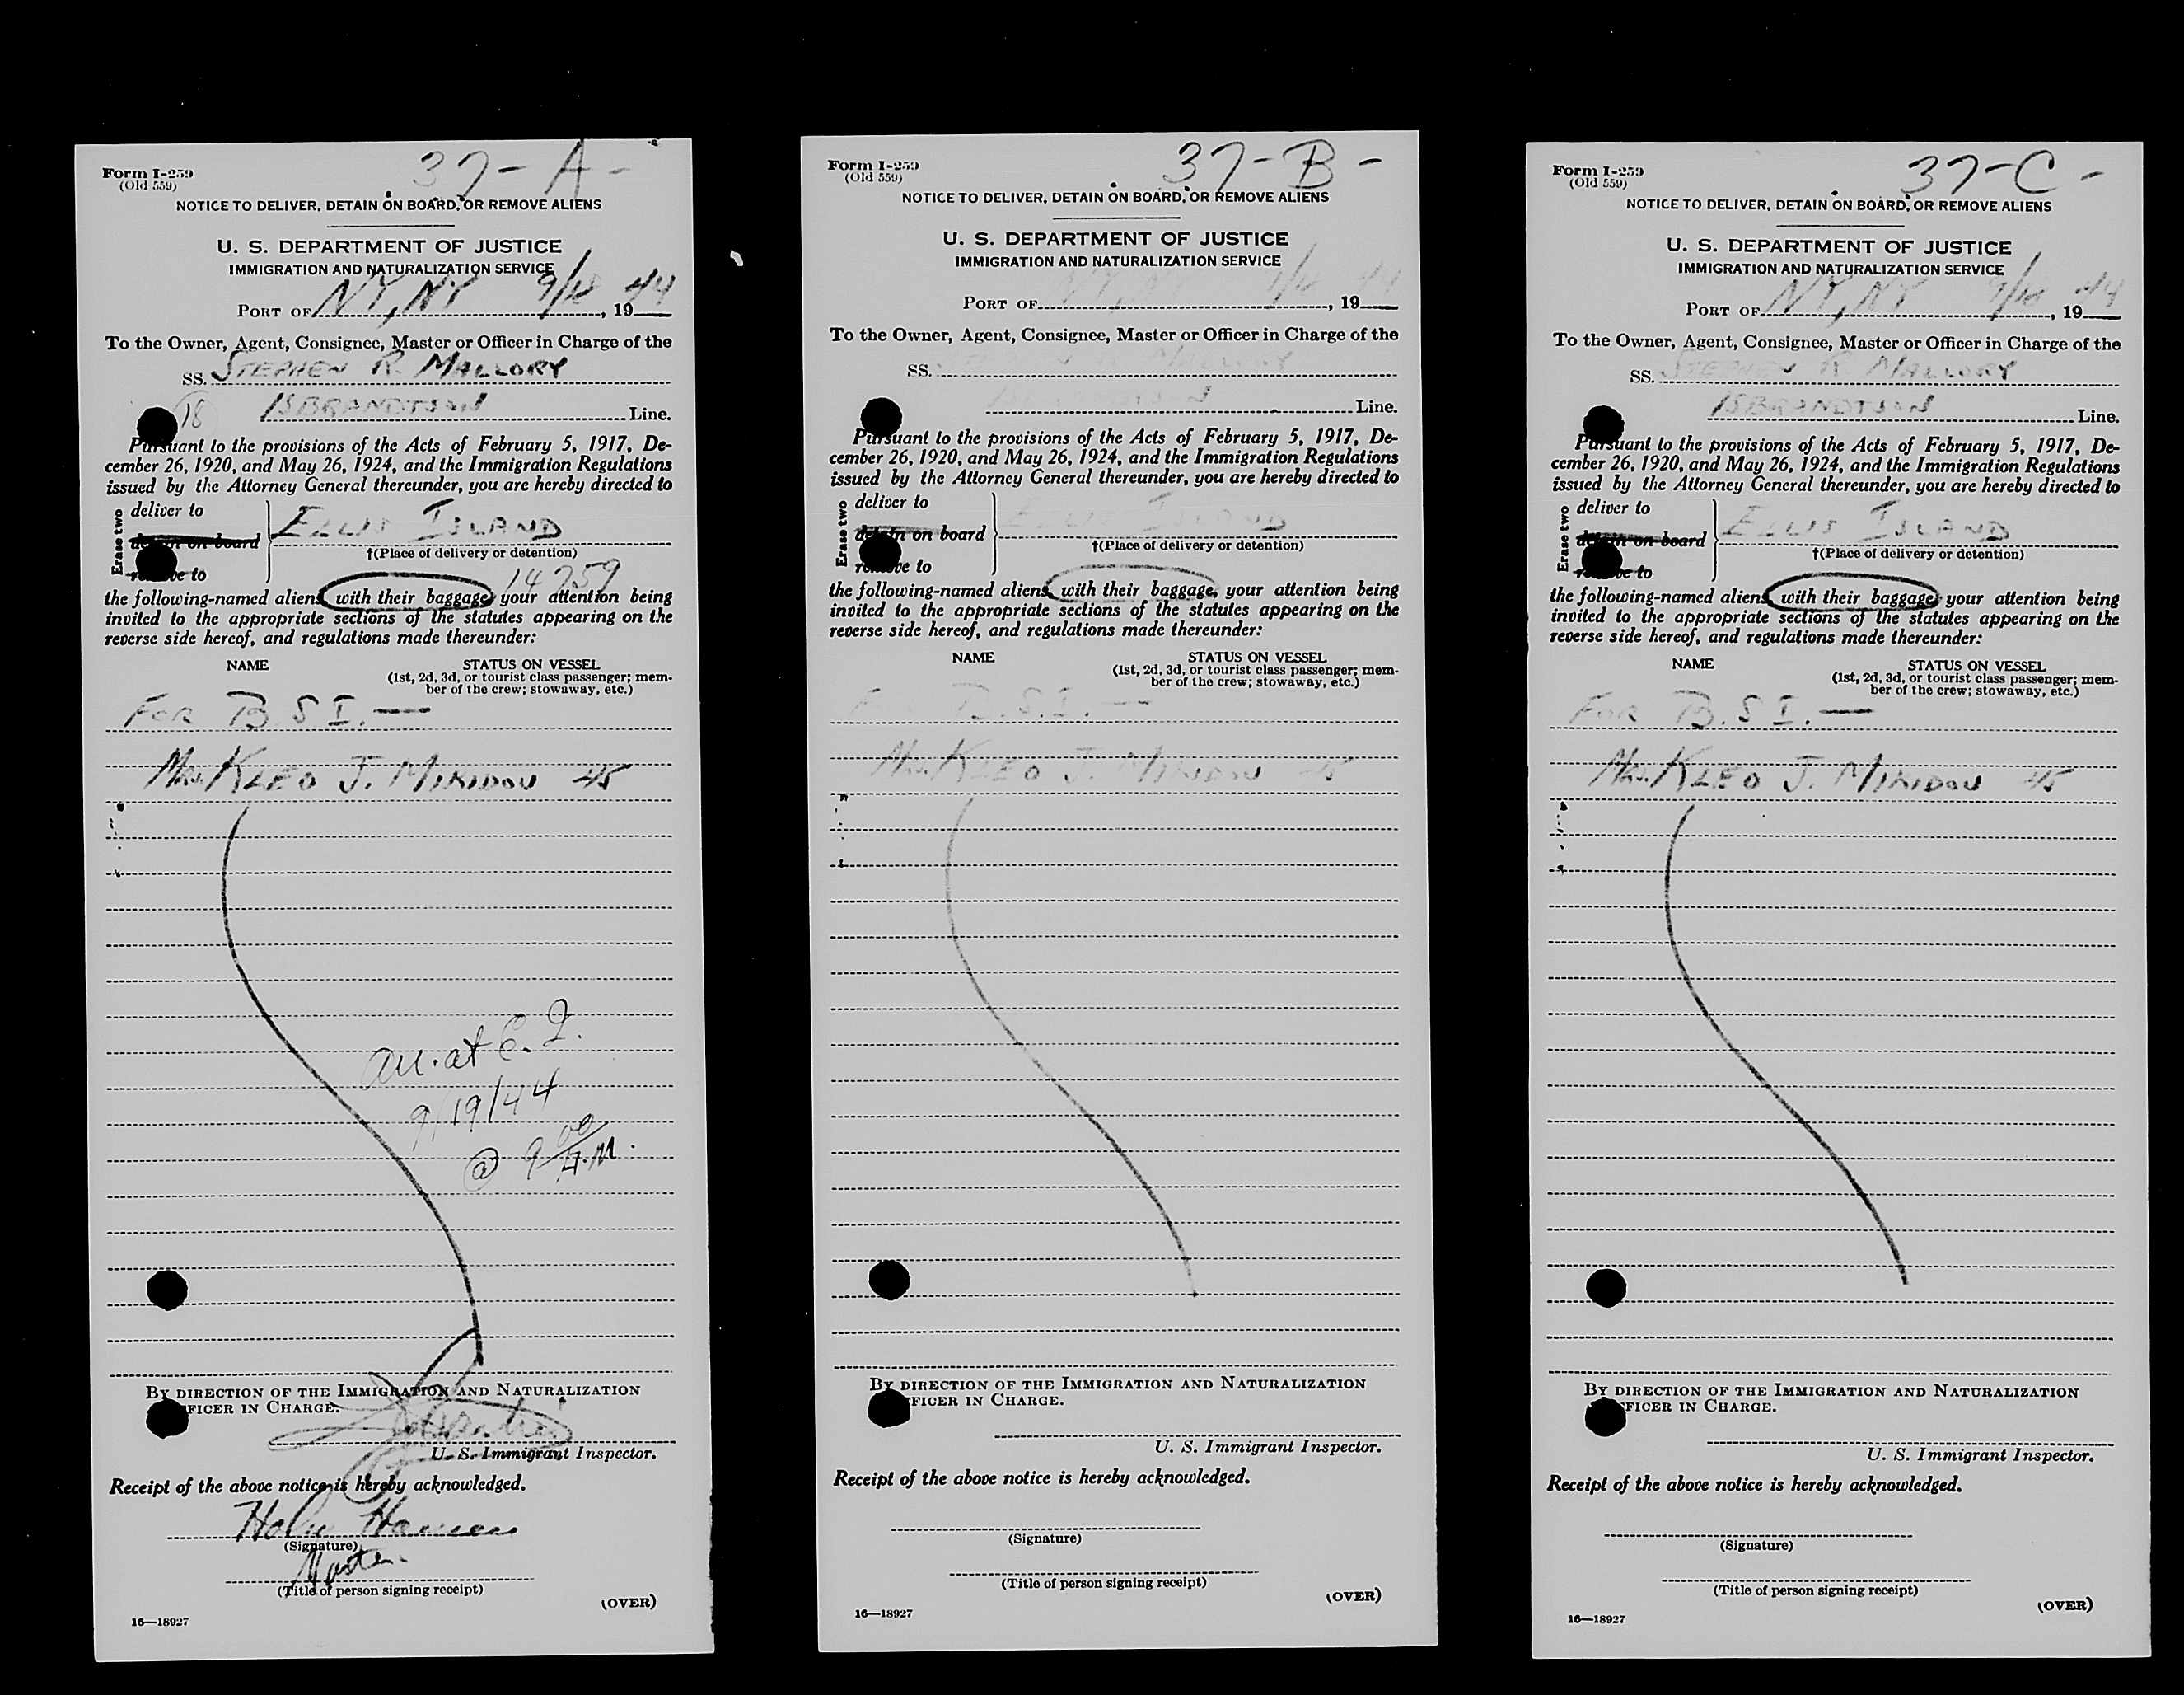 37-A-
Form I-259
(Old 559)
NOTICE TO DELIVER, DETAIN ON BOARD, OR REMOVE ALIENS
U. S. DEPARTMENT OF JUSTICE
IMMIGRATION AND NATURALIZATION SERVICE
PORT OF NY, NY 9/18, 19 44
To the Owner, Agent, Consignee, Master or Officer in Charge of the
SS. STEPHEN R. MALLORY
18 ISBRANDTSEN Line.
Pursuant to the provisions of the Acts of February 5, 1917, De-
cember 26, 1920, and May 26, 1924, and the Immigration Regulations
issued by the Attorney General thereunder, you are hereby directed to
Erase two
deliver to
detain on board ELLIS ISLAND
†(Place of delivery or detention)
remove to
14759
the following-named aliens with their baggage, your attention being
invited to the appropriate sections of the statutes appearing on the
reverse side hereof, and regulations made thereunder:
NAME STATUS ON VESSEL
(1st, 2d, 3d, or tourist class passenger; mem-
ber of the crew; stowaway, etc.)
FOR B.S.I.—
KLEO J. 45
arr. at E. I.
9/19/44
@ 9 00 A.M.
BY DIRECTION OF THE IMMIGRATION AND NATURALIZATION
OFFICER IN CHARGE.
U. S. Immigrant Inspector.
Receipt of the above notice is hereby acknowledged.
(Signature)
Master
(Title of person signing receipt)
(OVER)
16—18927
37-B-
Form I-259
(Old 559)
NOTICE TO DELIVER, DETAIN ON BOARD, OR REMOVE ALIENS
U. S. DEPARTMENT OF JUSTICE
IMMIGRATION AND NATURALIZATION SERVICE
PORT OF NY, NY , 19 44
To the Owner, Agent, Consignee, Master or Officer in Charge of the
SS. MALLORY
Line.
Pursuant to the provisions of the Acts of February 5, 1917, De-
cember 26, 1920, and May 26, 1924, and the Immigration Regulations
issued by the Attorney General thereunder, you are hereby directed to
Erase two
deliver to
detain on board ELLIS ISLAND
†(Place of delivery or detention)
remove to
the following-named aliens with their baggage, your attention being
invited to the appropriate sections of the statutes appearing on the
reverse side hereof, and regulations made thereunder:
NAME STATUS ON VESSEL
(1st, 2d, 3d, or tourist class passenger; mem-
ber of the crew; stowaway, etc.)
FOR B.S.I.—
KLEO J. 45
BY DIRECTION OF THE IMMIGRATION AND NATURALIZATION
OFFICER IN CHARGE.
U. S. Immigrant Inspector.
Receipt of the above notice is hereby acknowledged.
(Signature)
(Title of person signing receipt)
(OVER)
16—18927
37-C-
Form I-259
(Old 559)
NOTICE TO DELIVER, DETAIN ON BOARD, OR REMOVE ALIENS
U. S. DEPARTMENT OF JUSTICE
IMMIGRATION AND NATURALIZATION SERVICE
PORT OF NY, NY 9/18, 19 44
To the Owner, Agent, Consignee, Master or Officer in Charge of the
SS. STEPHEN R MALLORY
ISBRANDTSEN Line.
Pursuant to the provisions of the Acts of February 5, 1917, De-
cember 26, 1920, and May 26, 1924, and the Immigration Regulations
issued by the Attorney General thereunder, you are hereby directed to
Erase two
deliver to
detain on board ELLIS ISLAND
†(Place of delivery or detention)
remove to
the following-named aliens with their baggage, your attention being
invited to the appropriate sections of the statutes appearing on the
reverse side hereof, and regulations made thereunder:
NAME STATUS ON VESSEL
(1st, 2d, 3d, or tourist class passenger; mem-
ber of the crew; stowaway, etc.)
FOR B.S.I.—
KLEO J. 45
BY DIRECTION OF THE IMMIGRATION AND NATURALIZATION
OFFICER IN CHARGE.
U. S. Immigrant Inspector.
Receipt of the above notice is hereby acknowledged.
(Signature)
(Title of person signing receipt)
(OVER)
16—18927